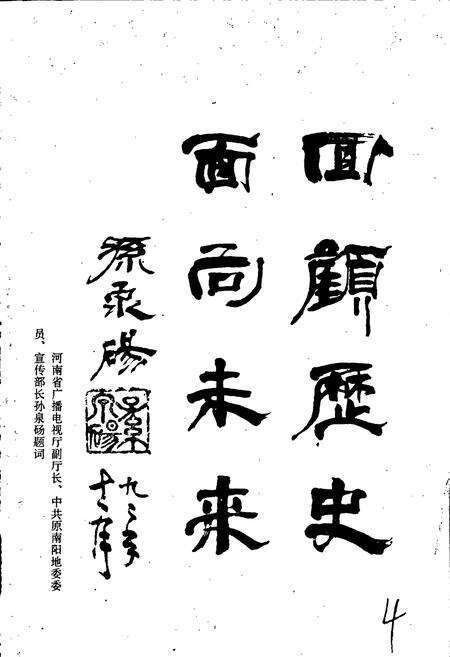 回顧歷史
面向未来
孫泉碭
九二年
十二月
河南省广播电视厅副厅长、中共原南阳地委委
员、宣传部长孙泉砀题词
4